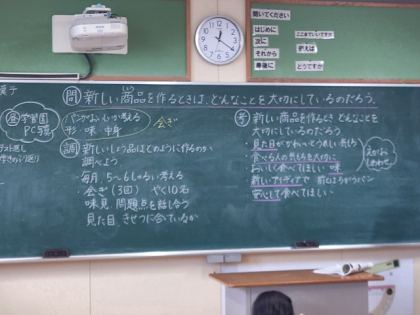 聞いてください
はじめに
次に
それから
最後に
ここまでいいですか
例えば
どうですか
問 新しい商品を作るときは、どんなことを大切にしているのだろう。
学習園
PC室
パンがおいしいか考える
形 味 中身
会ぎ
調 新しい商品はどのように作るのか
調べよう
・毎月 5〜6しゅるい考える
・会ぎ(3回) やく10名
味見 問題点を話し合う
見た目 きせつに合っているか
考 新しい商品を作るとき どんなことを
大切にしているのだろう
・見た目が
・食べる人の気もちを大切に
おいしく食べてほしい 味
新しいアイディアで
安心して食べてほしい
えがお
しあわせ